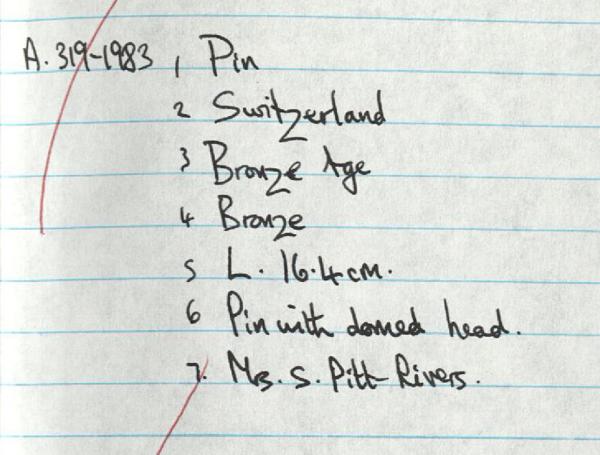 A. 319-1983 1 Pin
2 Switzerland
3 Bronze Age
4 Bronze
5 L. 16.4 cm.
6 Pin with domed head.
7. Mrs. S. Pitt-Rivers.